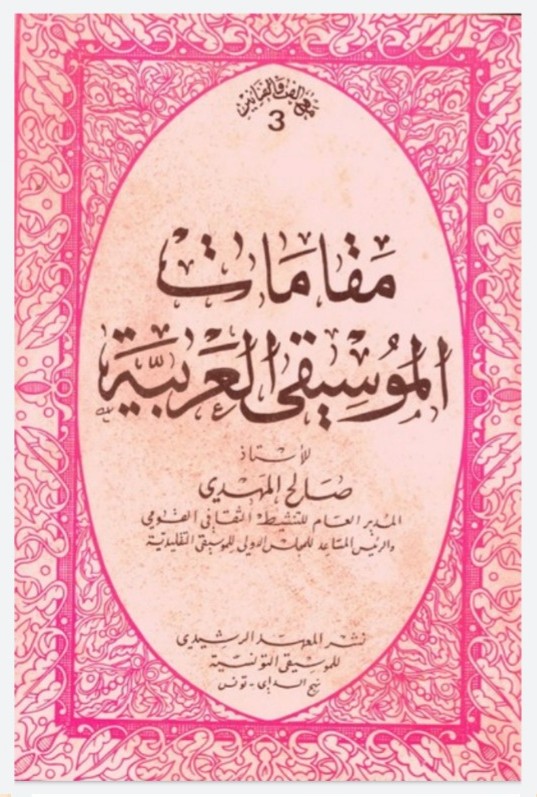 مع الفن والفنانين
3
مقامات
الموسيقى العربية
للأستاذ
صالح المهدي
المدير العام للتنشيط الثقافي القومي
والرئيس المساعد للمجلس الدولي للموسيقى التقليدية
نشر المعهد الرشيدي
للموسيقى التونسية
نهج الداي - تونس